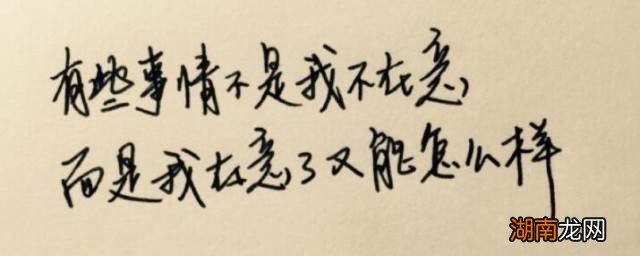 有些事情不是我不在意，
而是我在意了又能怎么样
湖南龙网